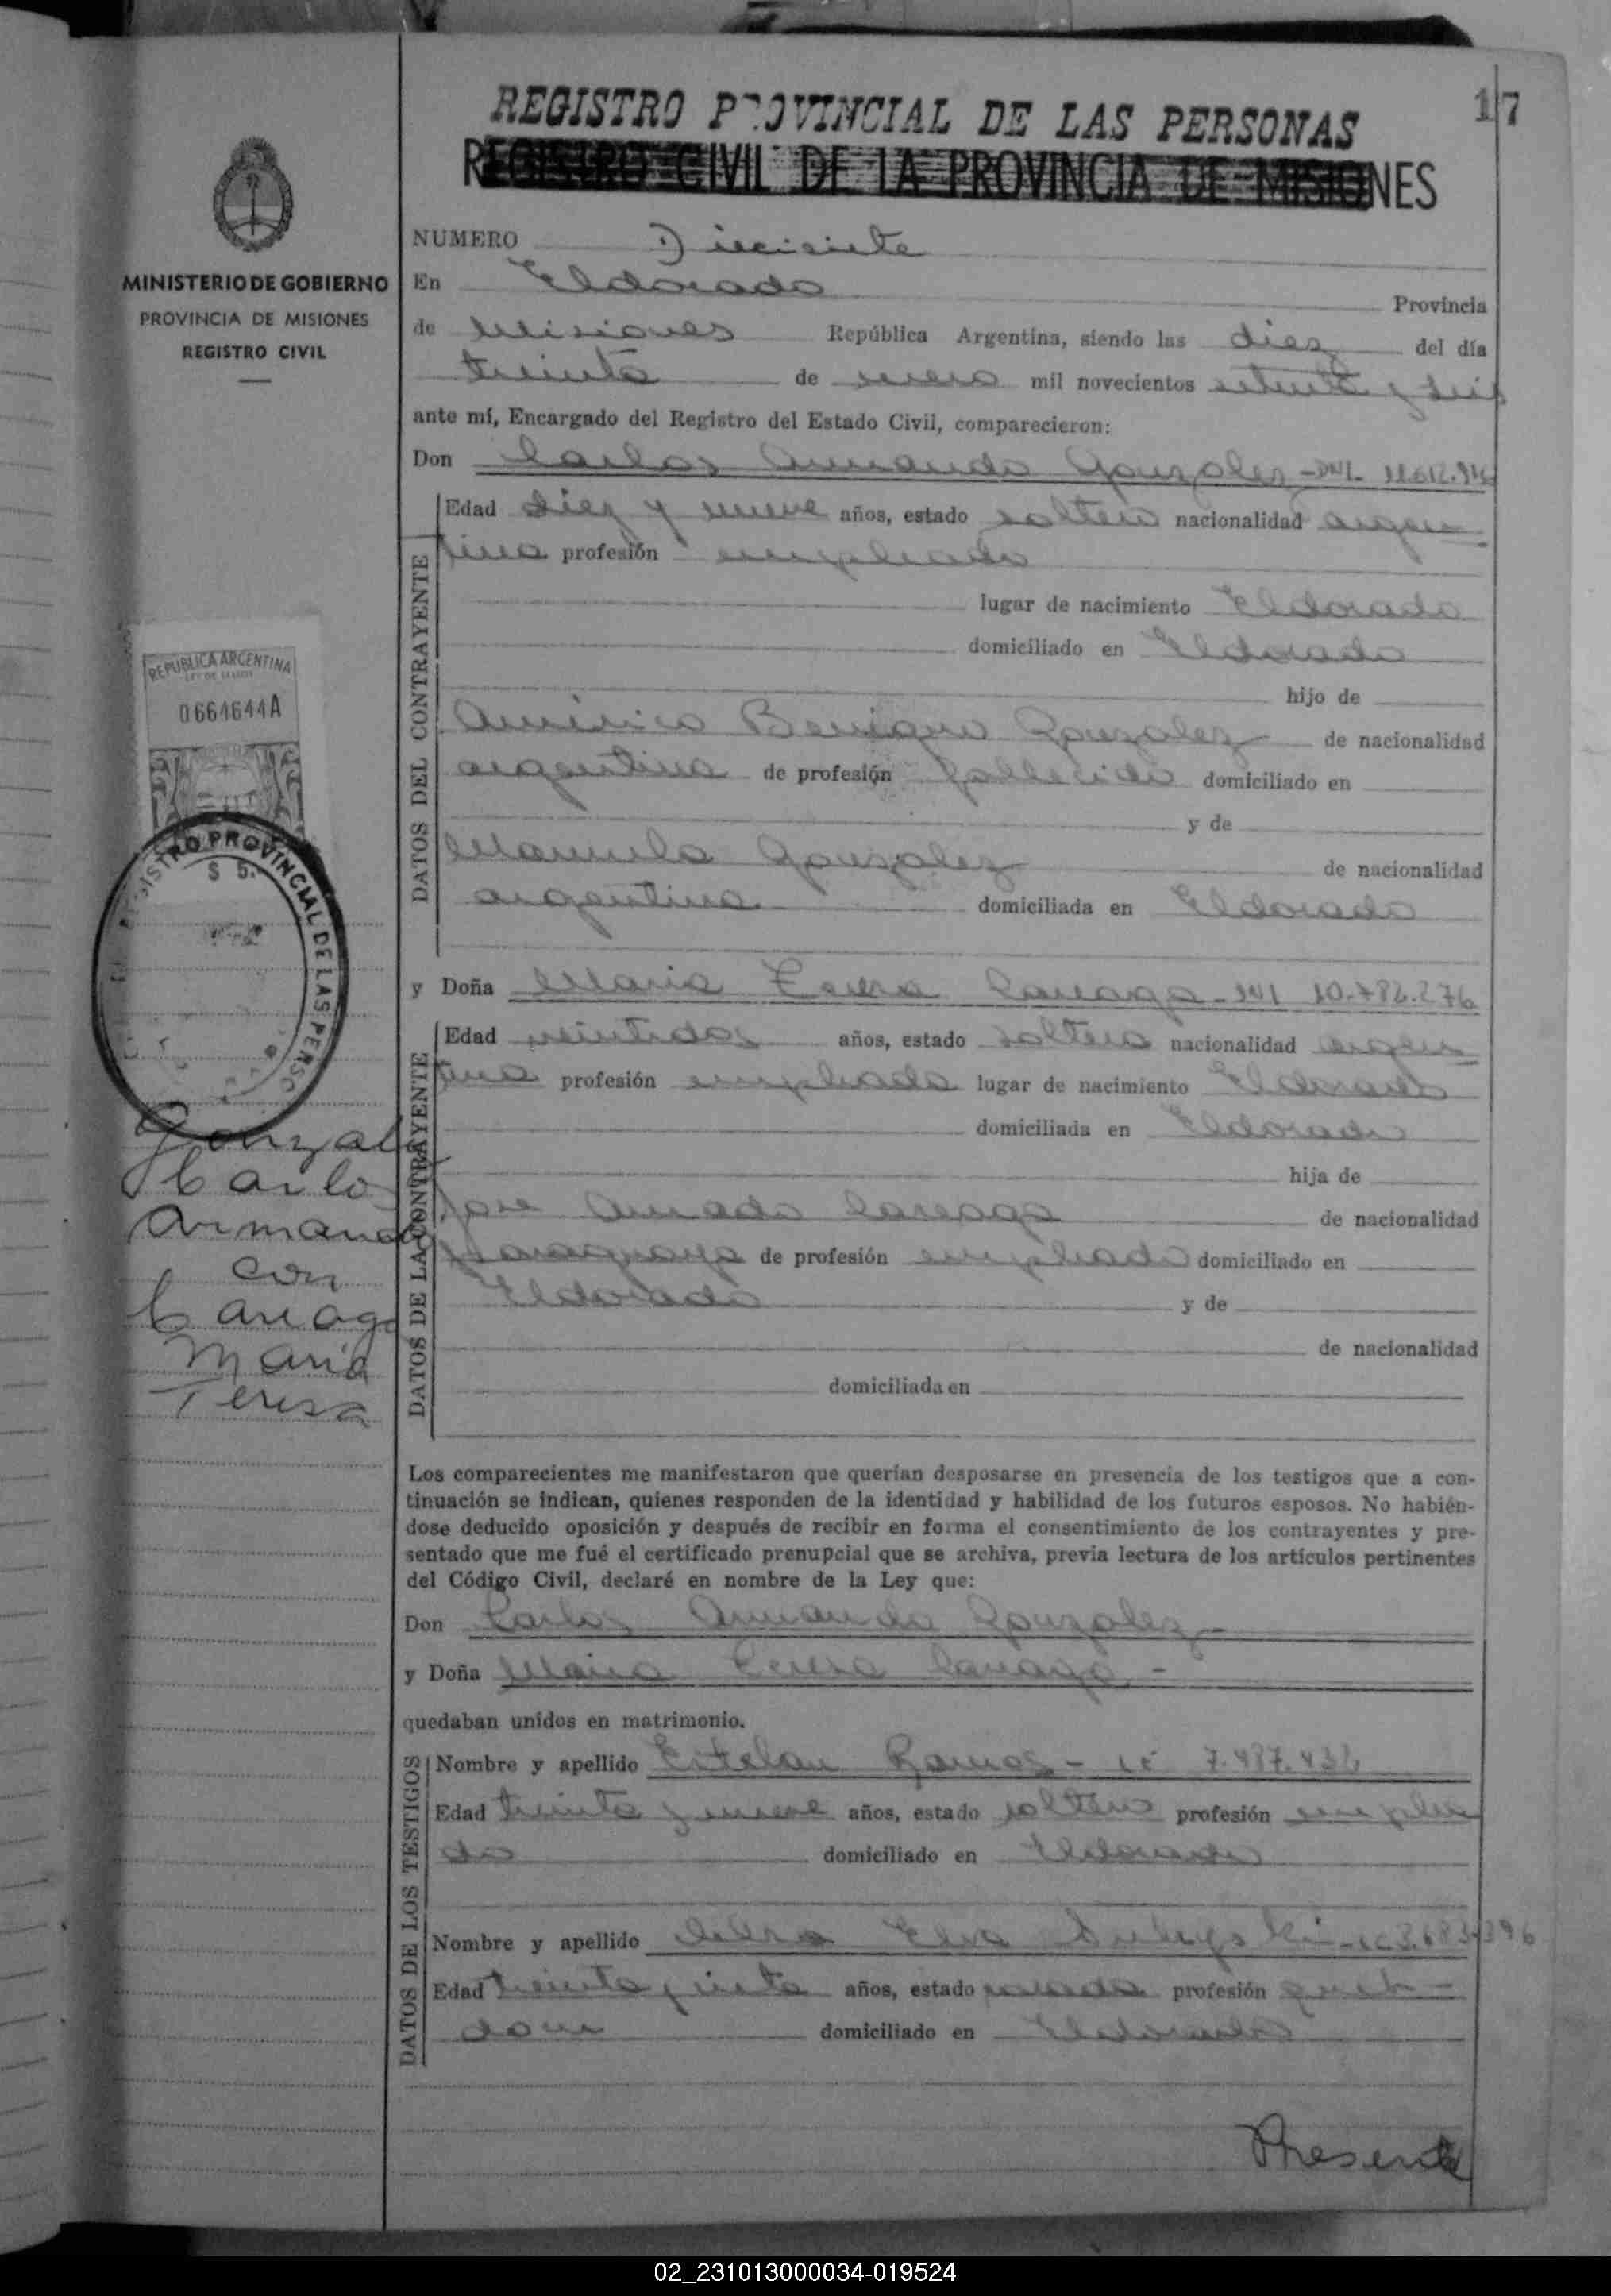 17
REGISTRO PROVINCIAL DE LAS PERSONAS
REGISTRO CIVIL DE LA PROVINCIA DE MISIONES
MINISTERIO DE GOBIERNO
PROVINCIA DE MISIONES
REGISTRO CIVIL
NUMERO Diecisiete
En Eldorado Provincia
de Misiones República Argentina, siendo las diez del día
treinta de enero mil novecientos setenta y seis
ante mí, Encargado del Registro del Estado Civil, comparecieron:
Don Carlos Armando Gonzalez - DNI.
DATOS DEL CONTRAYENTE
Edad diez y nueve años, estado soltero nacionalidad argen
tina profesión empleado
lugar de nacimiento Eldorado
domiciliado en Eldorado
hijo de
Américo Benigno Gonzalez de nacionalidad
argentina de profesión fallecido domiciliado en
y de
Manuela Gonzalez de nacionalidad
argentina domiciliada en Eldorado
REPUBLICA ARGENTINA
LEY DE SELLOS
0664644A
$ 5.-
REGISTRO PROVINCIAL DE LAS PERSO
y Doña Maria Teresa Careaga - DNI
DATOS DE LA CONTRAYENTE
Edad veintidos años, estado soltera nacionalidad argen
tina profesión empleada lugar de nacimiento Eldorado
domiciliada en Eldorado
hija de
Jose Amado Careaga de nacionalidad
paraguaya de profesión empleado domiciliado en
Eldorado y de
de nacionalidad
domiciliada en
Gonzalez
Carlos
Armando
con
Careaga
Maria
Teresa
Los comparecientes me manifestaron que querían desposarse en presencia de los testigos que a con-
tinuación se indican, quienes responden de la identidad y habilidad de los futuros esposos. No habién-
dose deducido oposición y después de recibir en forma el consentimiento de los contrayentes y pre-
sentado que me fué el certificado prenupcial que se archiva, previa lectura de los artículos pertinentes
del Código Civil, declaré en nombre de la Ley que:
Don Carlos Armando Gonzalez -
y Doña Maria Teresa Careaga -
quedaban unidos en matrimonio.
DATOS DE LOS TESTIGOS
Nombre y apellido Esteban Ramos -
Edad treinta y nueve años, estado soltero profesión emplea
do domiciliado en Eldorado
Nombre y apellido Elva
Edad treinta y siete años, estado casada profesión queh -
dom domiciliado en Eldorado
Presente
02_231013000034-019524